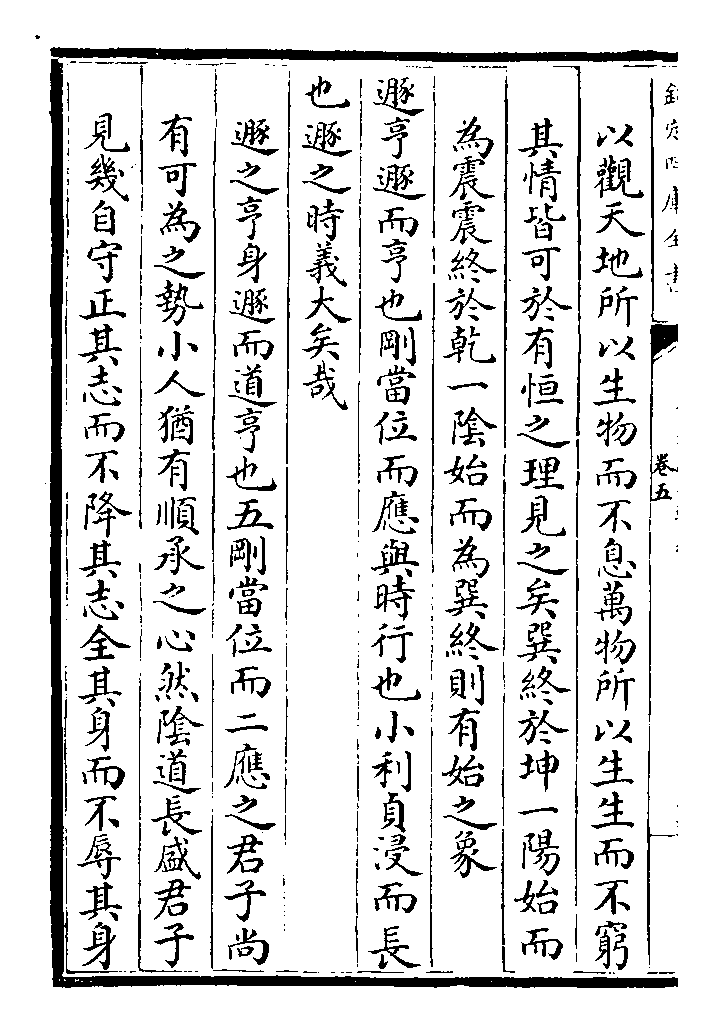 欽定四庫全書
卷五
以觀天地所以生物而不息萬物所以生生而不窮
其情皆可於有恒之理見之矣巽終於坤一陽始而
為震震終於乾一陰始而為巽終則有始之象
遯亨遯而亨也剛當位而應與時行也小利貞浸而長
也遯之時義大矣哉
遯之亨身遯而道亨也五剛當位而二應之君子尚
有可為之勢小人猶有順承之心然陰道長盛君子
見幾自守正其志而不降其志全其身而不辱其身